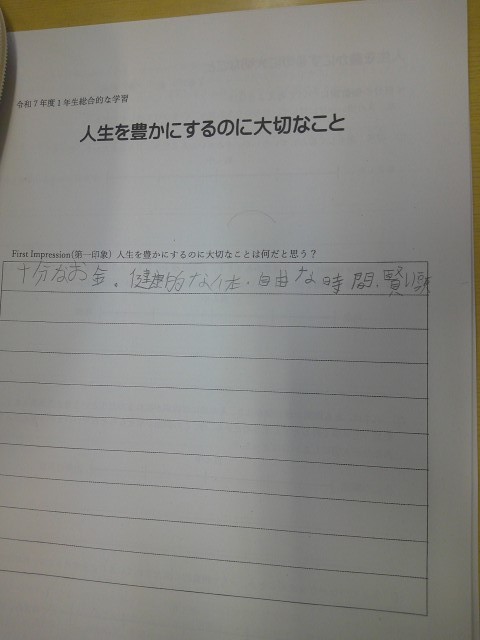 令和7年度1年生総合的な学習
人生を豊かにするのに大切なこと
First Impression(第一印象) 人生を豊かにするのに大切なことは何だと思う？
十分なお金。健康的な体・自由な時間、賢い頭